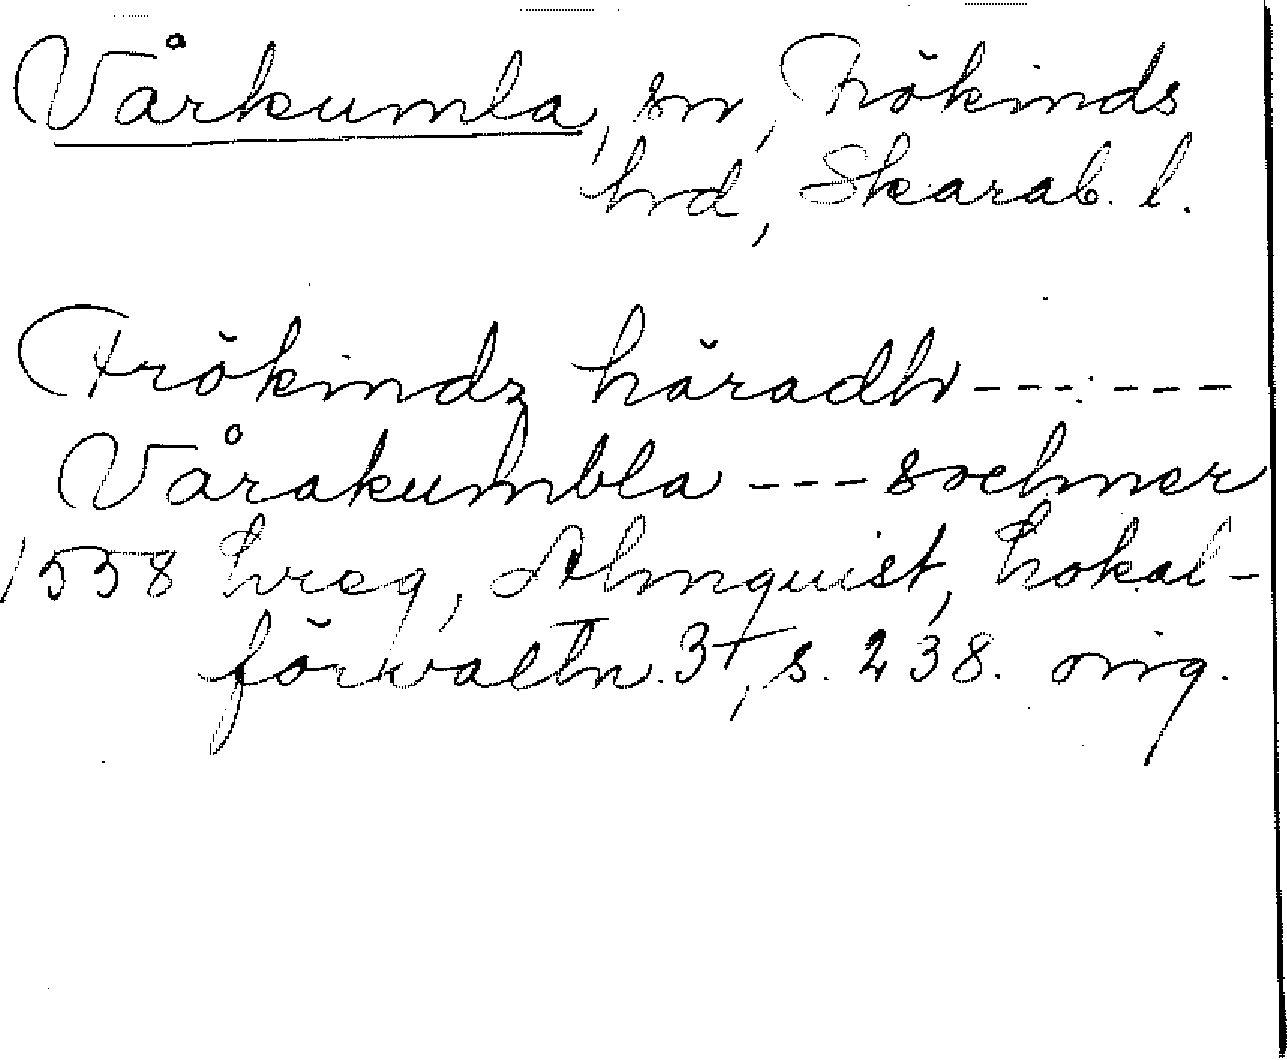 Vårkumla, sn, Frökinds
hd, Skarab. l.
Frökindz häradh ------
Vårakumbla --- sochner
1558 hreg, Almquist, Lokal-
förvaltn. 3+, s. 238. orig.